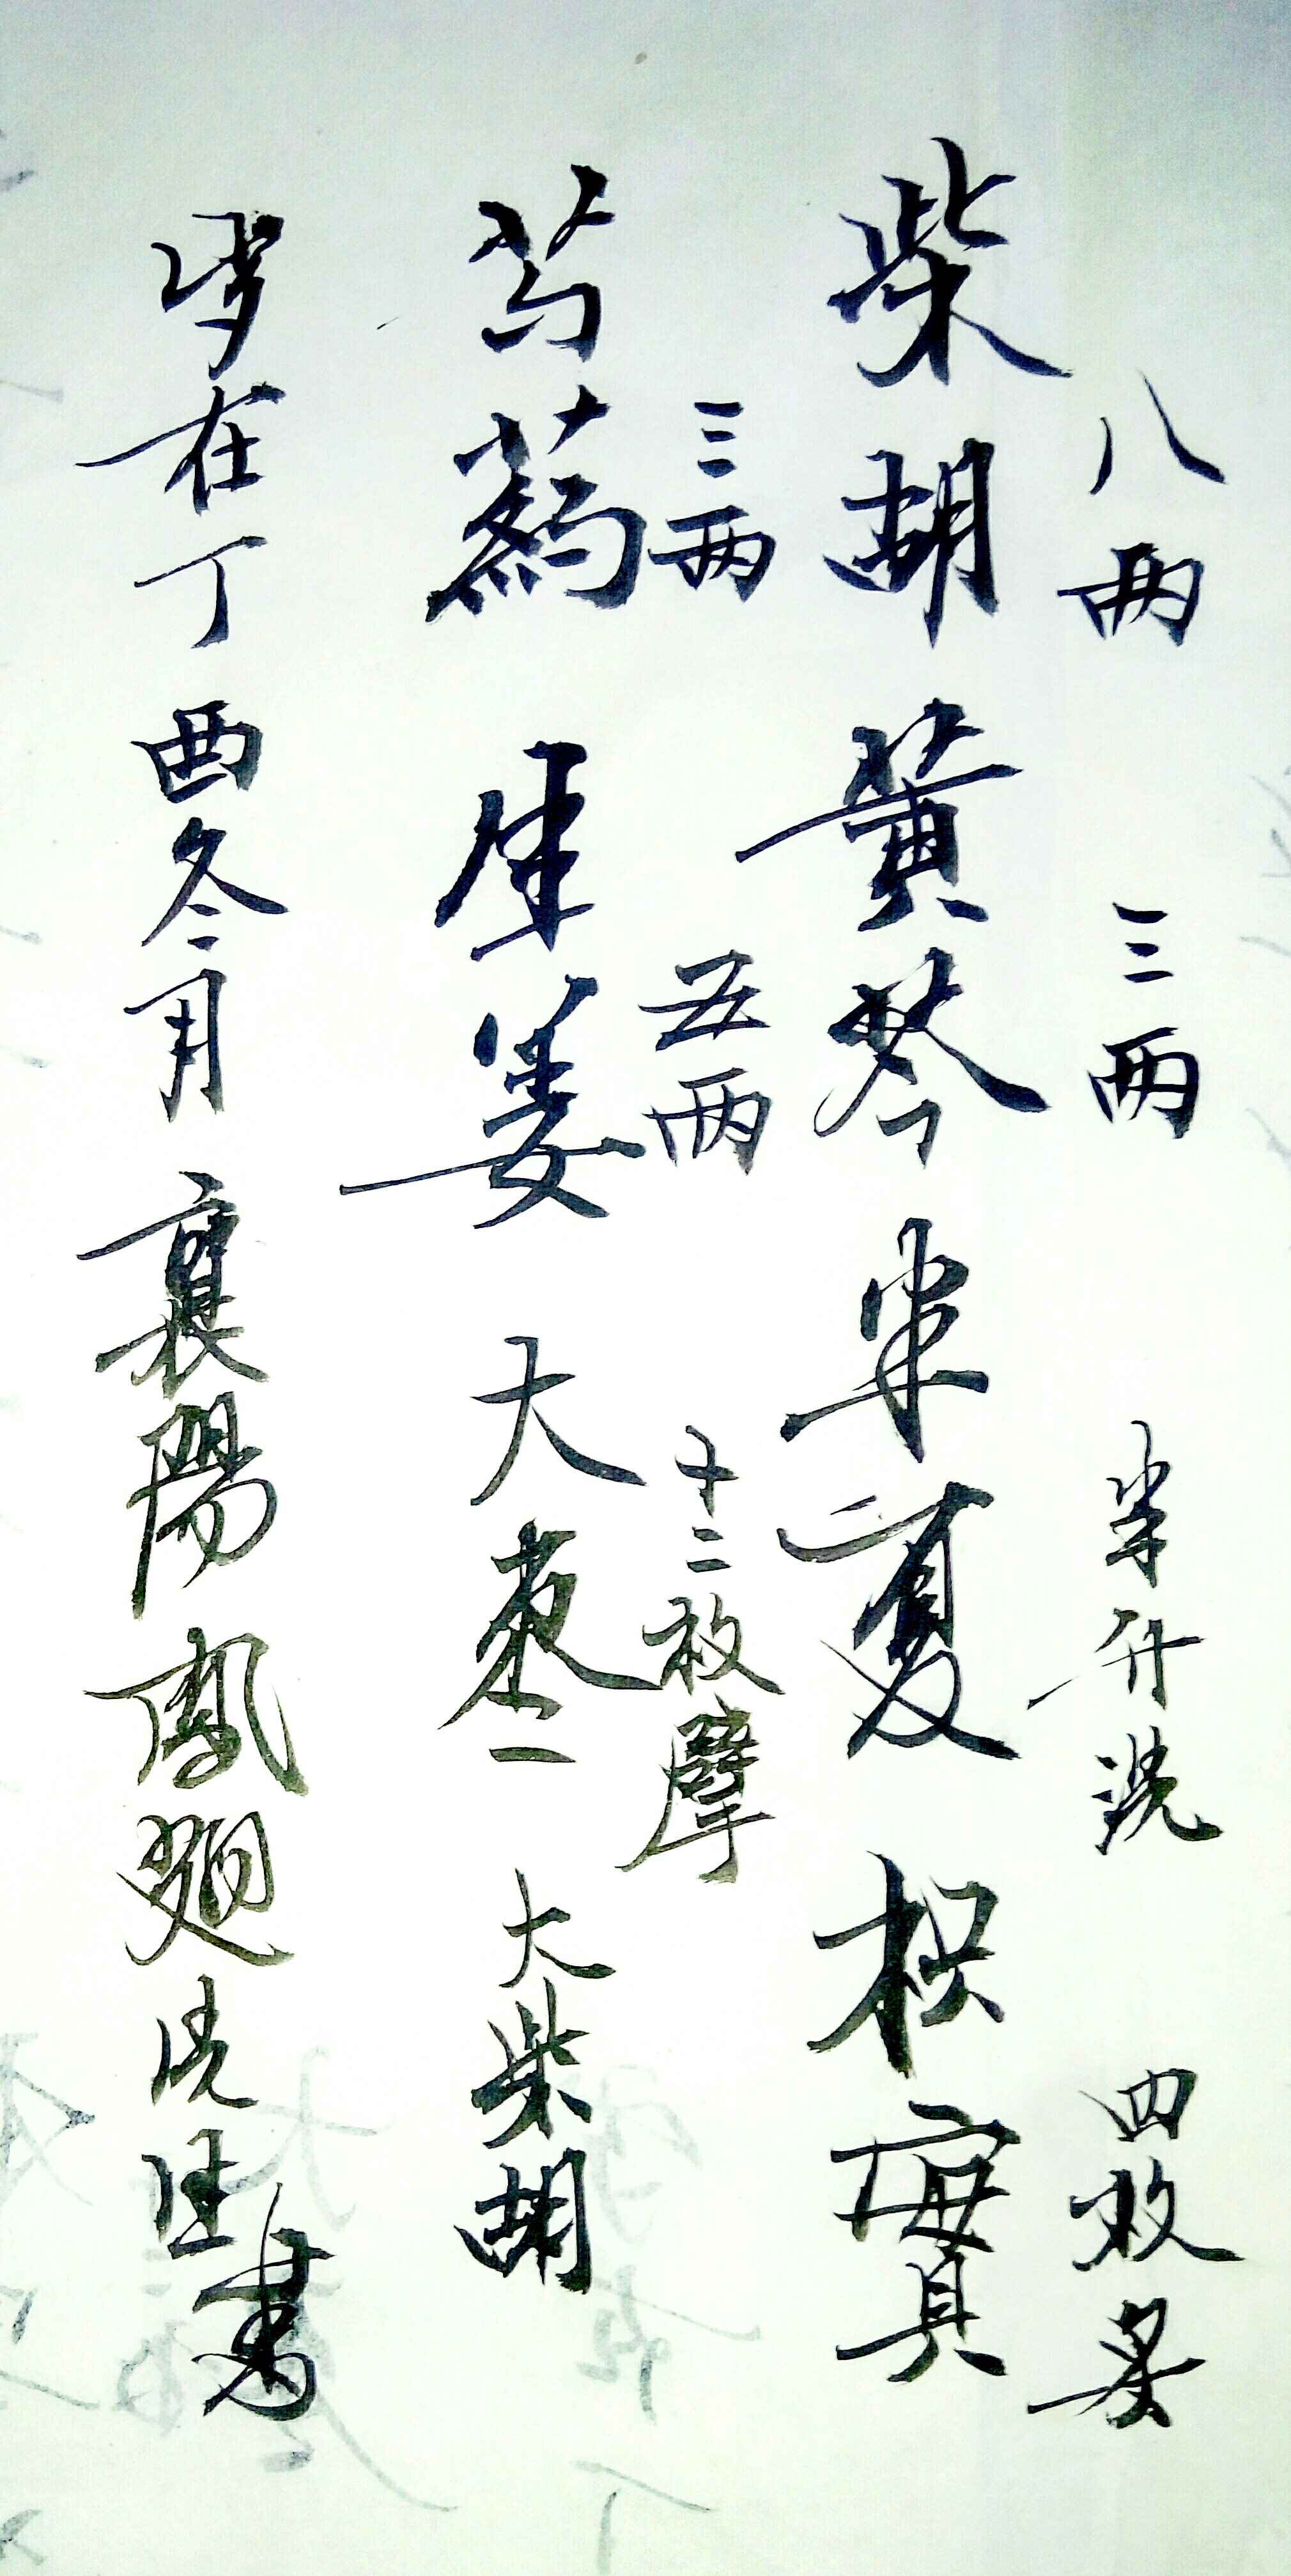 八两 三两 半升洗 四枚炙
柴胡 黄芩 半夏 枳實
三两 五两 十二枚擘
芍藥 生姜 大棗 大柴胡
岁在丁酉冬月 襄陽 鳳翅先生書